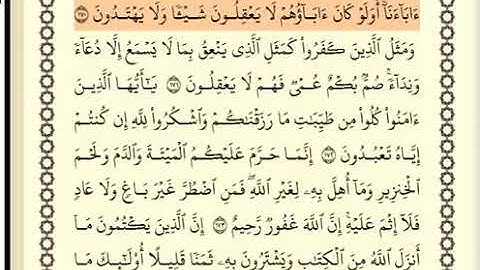 ءَابَآءَنَآۗ أَوَلَوْ كَانَ ءَابَآؤُهُمْ لَا يَعْقِلُونَ شَيْـًٔا وَلَا يَهْتَدُونَ ١٧٠
وَمَثَلُ ٱلَّذِينَ كَفَرُوا۟ كَمَثَلِ ٱلَّذِى يَنْعِقُ بِمَا لَا يَسْمَعُ إِلَّا دُعَآءً
وَنِدَآءًۚ صُمٌّۢ بُكْمٌ عُمْىٌ فَهُمْ لَا يَعْقِلُونَ ١٧١ يَـٰٓأَيُّهَا ٱلَّذِينَ
ءَامَنُوا۟ كُلُوا۟ مِن طَيِّبَـٰتِ مَا رَزَقْنَـٰكُمْ وَٱشْكُرُوا۟ لِلَّهِ إِن كُنتُمْ
إِيَّاهُ تَعْبُدُونَ ١٧٢ إِنَّمَا حَرَّمَ عَلَيْكُمُ ٱلْمَيْتَةَ وَٱلدَّمَ وَلَحْمَ
ٱلْخِنزِيرِ وَمَآ أُهِلَّ بِهِۦ لِغَيْرِ ٱللَّهِۖ فَمَنِ ٱضْطُرَّ غَيْرَ بَاغٍ وَلَا عَادٍ
فَلَآ إِثْمَ عَلَيْهِۚ إِنَّ ٱللَّهَ غَفُورٌ رَّحِيمٌ ١٧٣ إِنَّ ٱلَّذِينَ يَكْتُمُونَ مَآ
أَنزَلَ ٱللَّهُ مِنَ ٱلْكِتَـٰبِ وَيَشْتَرُونَ بِهِۦ ثَمَنًا قَلِيلًاۙ أُو۟لَـٰٓئِكَ مَا